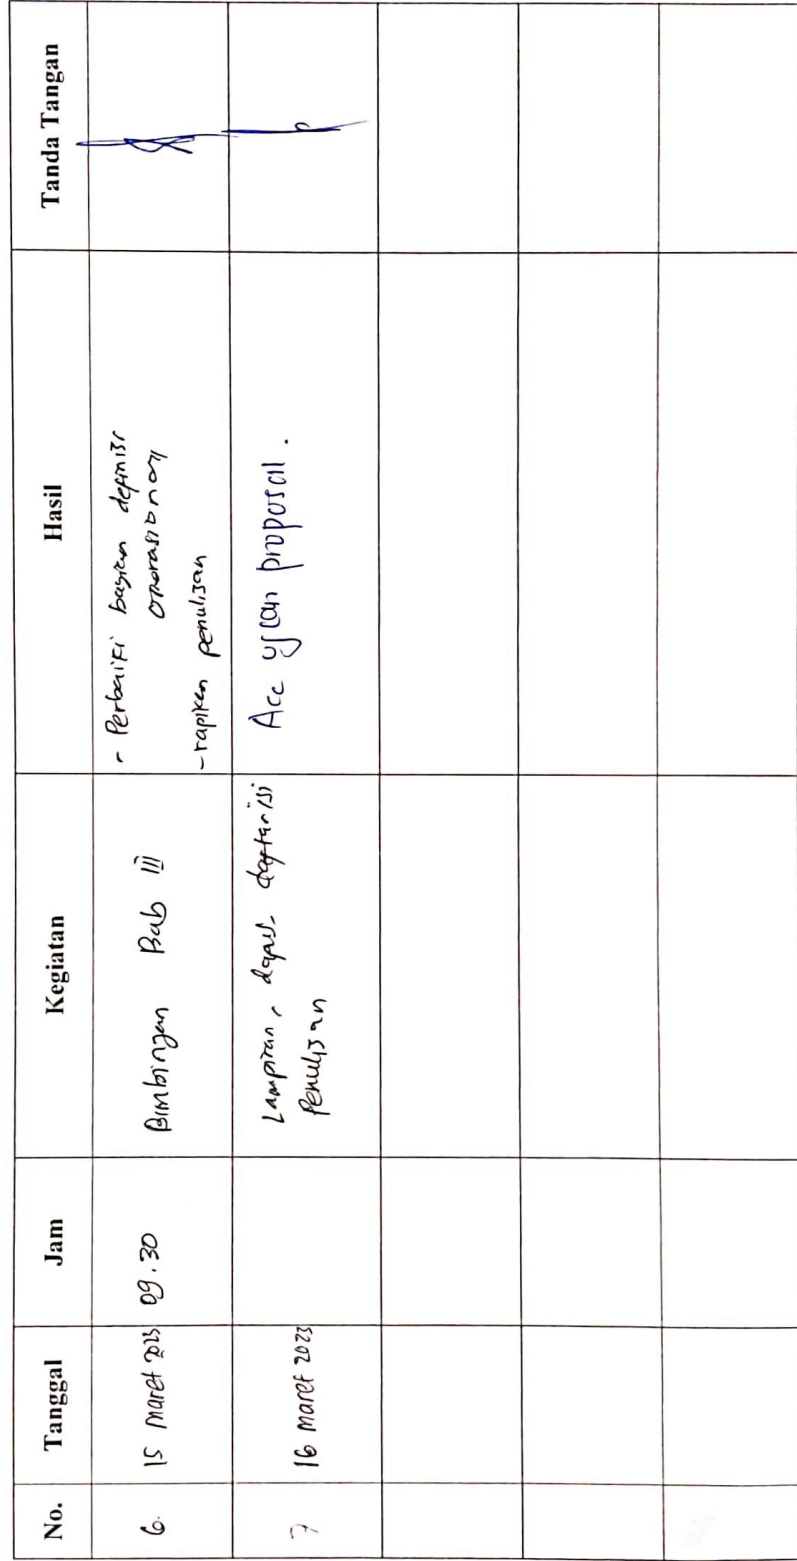 No. Tanggal Jam Kegiatan Hasil Tanda Tangan
6. 15 maret 2023 09.30 Bimbingan Bab III - Perbaiki bagian definisi
operasional
- rapikan penulisan
7 16 maret 2023 Lampiran, daftar isi Acc ujian proposal.
Penulisan